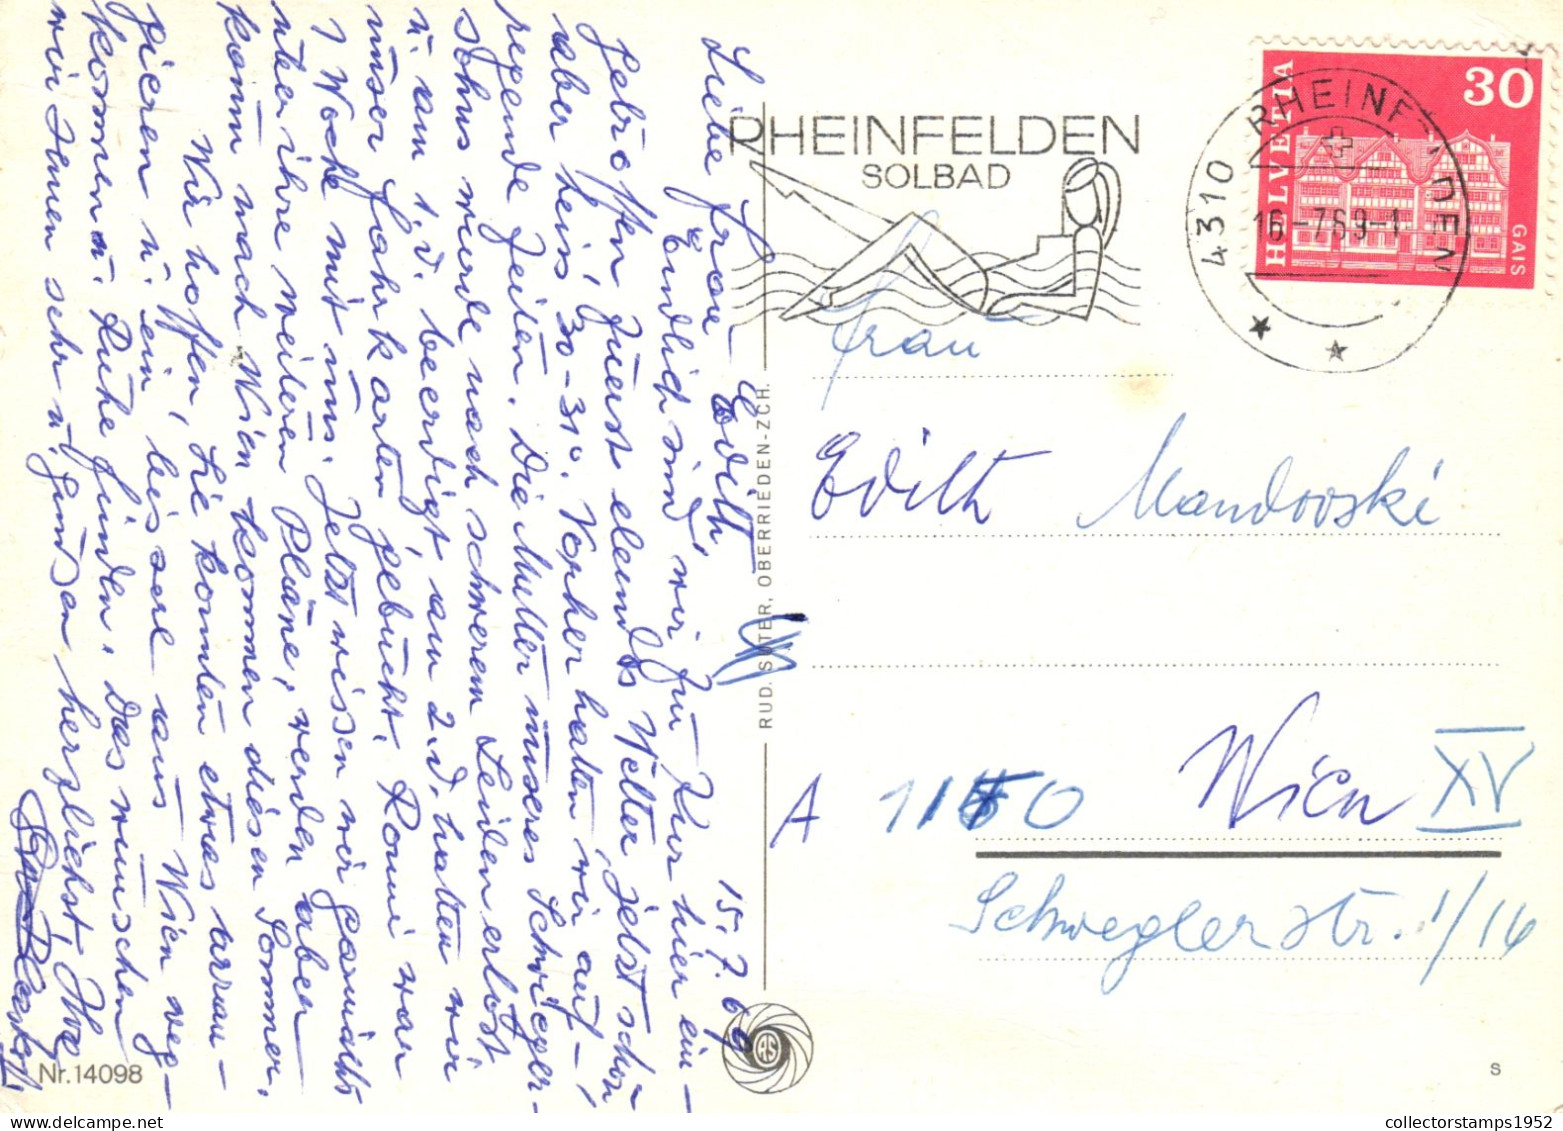 15.7.69
Liebe Frau Edith,
Endlich sind wir zur Kur hier ein-
getroffen, zuerst elendes Wetter, jetzt schön
aber heiss, 30-31°. Vorher hatten wir auf-
regende Zeiten. Die Mutter unseres Schwieger-
sohns wurde nach schwerem Leiden erlöst
u. am 1.d. beerdigt, am 2.d. hatten wir
unser Fahrkarten gebucht. Romi war
1 Woche mit uns. Jetzt wissen wir garnichts
über ihre weiteren Pläne, werden aber
kaum nach Wien kommen diesen Sommer.
Wir hoffen, Sie konnten etwas arran-
gieren u. ein bisserl aus Wien weg-
kommen u. Ruhe finden. Das wünschen
wir Ihnen sehr u. grüssen herzlichst, Ihre
Nr. 14098
RHEINFELDEN
SOLBAD
RUD. SUTER, OBERRIEDEN-ZCH.
4310 RHEINFELDEN
16-7.69-1
HELVETIA
30
GAIS
Frau
Edith Mandovski
A 1150 Wien XV
Schweglerstr. 1/16
S
collectorstamps1952